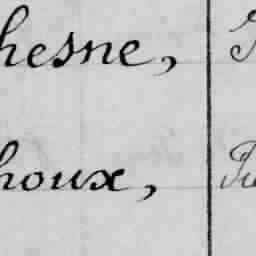 hesne,
houx,